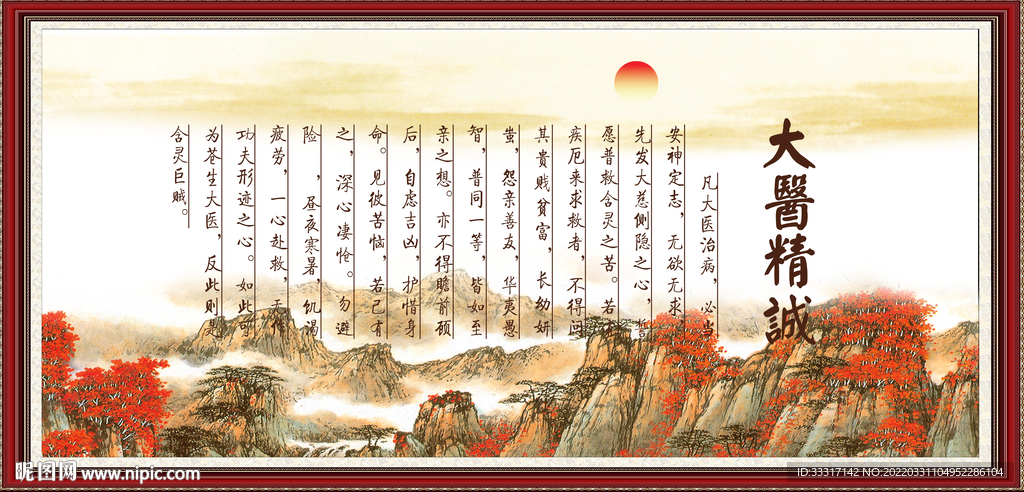 大醫精誠
凡大医治病，必当
安神定志，无欲无求，
先发大慈恻隐之心，誓
愿普救含灵之苦。若有
疾厄来求救者，不得问
其贵贱贫富，长幼妍
蚩，怨亲善友，华夷愚
智，普同一等，皆如至
亲之想。亦不得瞻前顾
后，自虑吉凶，护惜身
命。见彼苦恼，若己有
之，深心凄怆。勿避
险，昼夜寒暑，饥渴
疲劳，一心赴救，无作
功夫形迹之心。如此可
为苍生大医，反此则是
含灵巨贼。
昵图网 www.nipic.com
ID:33317142 NO:20220331104952286104